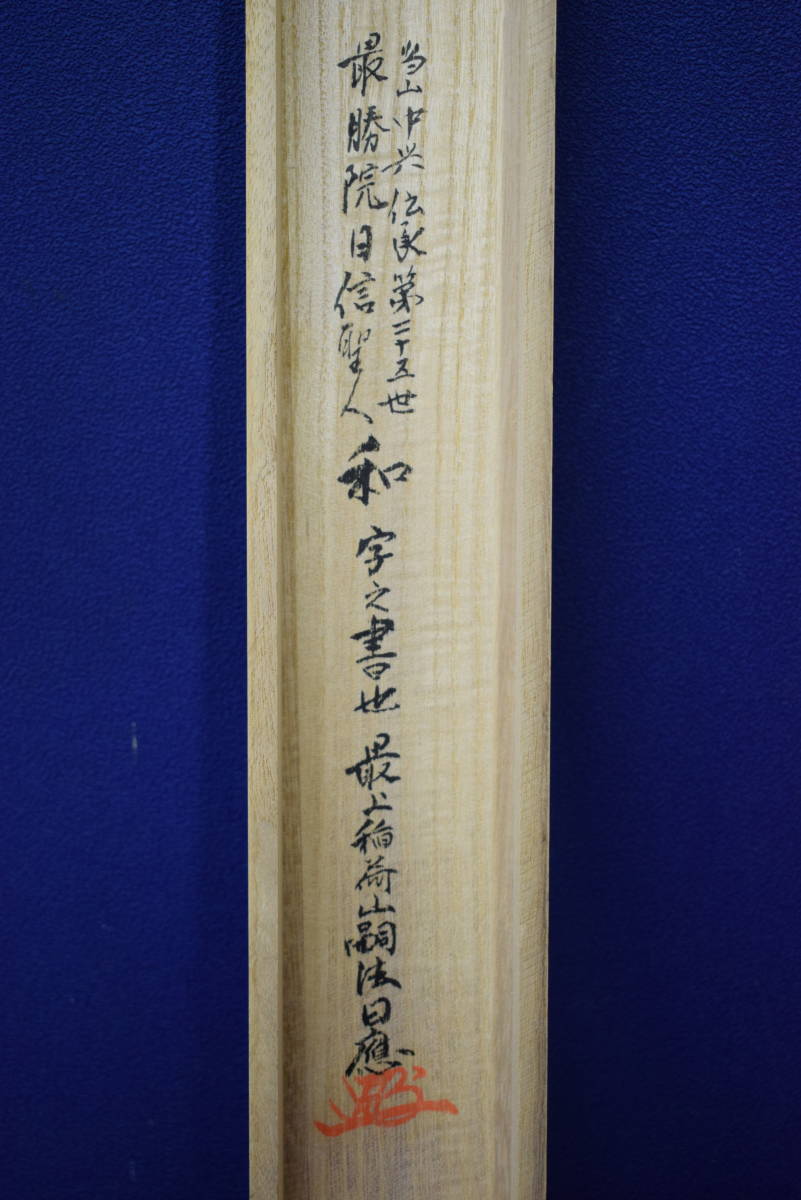 当山中兴伝承第二十五世
最勝院日信聖人
和字之書也 最上稲荷山嗣法日應